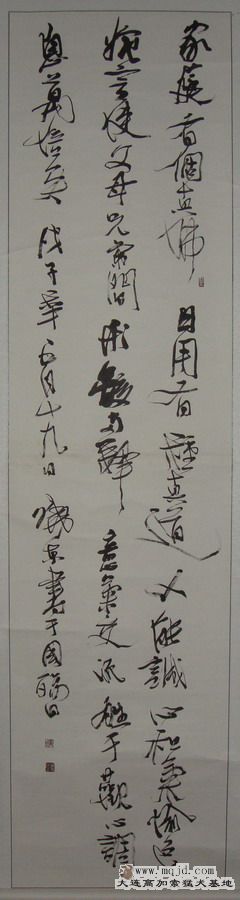 家庭有個真佛 日用有種真道 人能誠心和氣愉色
婉言使父母兄弟間形骸两釋 意氣交流 勝于觀心調
息萬倍矣 戊子年五月十九日 書于國
www.mqjd.com
大连高加索猛犬基地